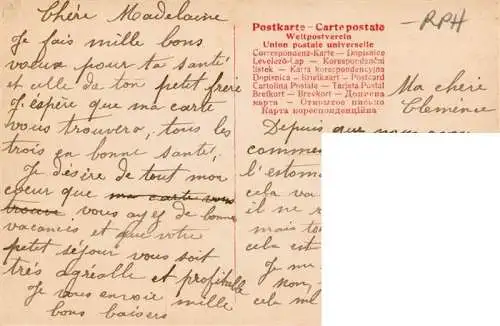 Chére Madelaine
Je fais mille bons
voeux pour ta santé
et celle da ton petit freie
J'éspère que ma carte
vous trouvera, tous les
trois en bonne santé.
Je désire de tout mon
coeur que ma carte vous
trouve vous ayez de bonne
vacances et que votre
petit séjour vous soit
trés agréable et profitable
Je vous envoie mille
bons baisers
Postkarte – Carte postale
Weltpostverein
Union postale universelle
Correspondenz-Karte – Dopisnice
Levelező-Lap – Korespondenční
lístek – Karta korespondencyjna
Dopisnica – Briefkaart – Postcard
Cartolina Postale – Tarjeta Postal
Brefkort – Brevkort – Дописна
карта – Открытое письмо
Карта кореспонденційна
RPH
Ma chère
Clemènce
Depuis que nous
comme
l'estom
cela va
il ne
mais to
cela est
Je me
Non,
cela m